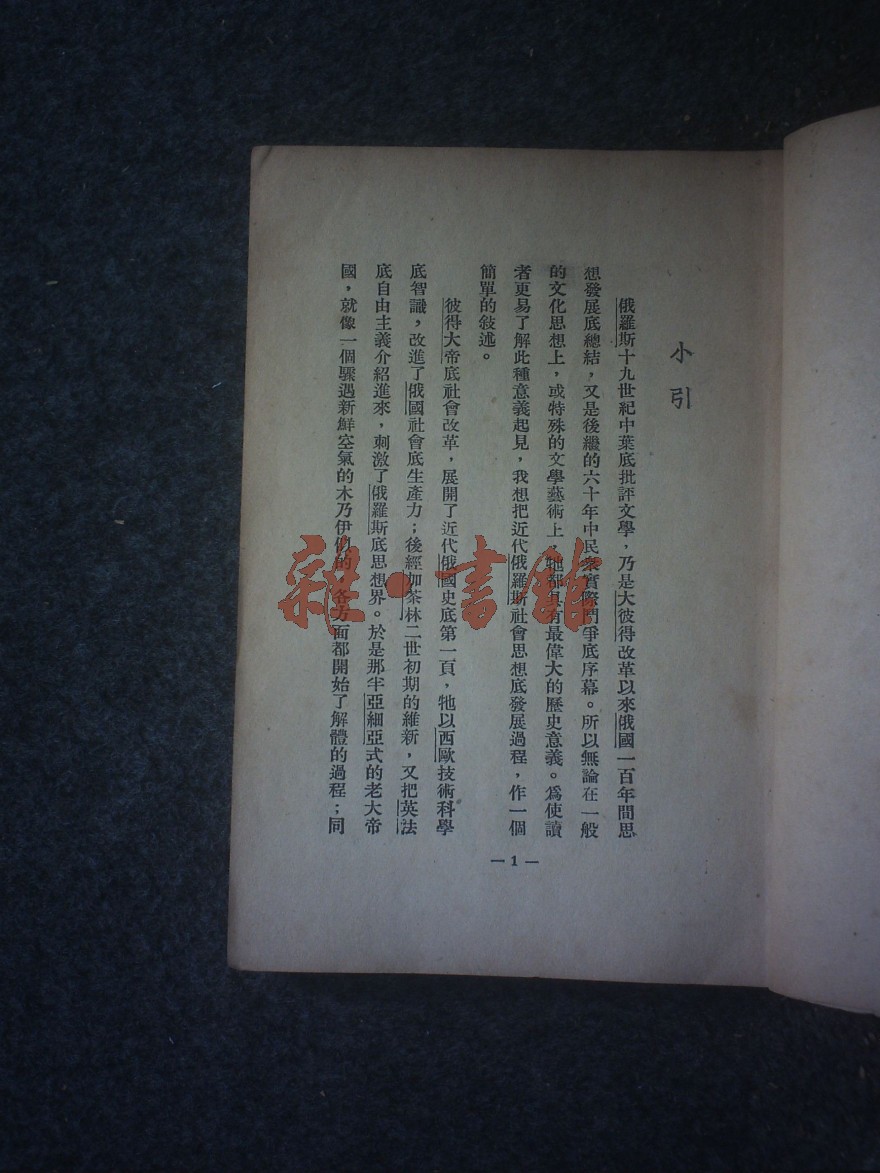 小引
俄羅斯十九世紀中葉底批評文學，乃是大彼得改革以來俄國一百年間思
想發展底總結，又是後繼的六十年中民衆實際鬥爭底序幕。所以無論在一般
的文化思想上，或特殊的文學藝術上，牠都具有最偉大的歷史意義。爲使讀
者更易了解此種意義起見，我想把近代俄羅斯社會思想底發展過程，作一個
簡單的敍述。
彼得大帝底社會改革，展開了近代俄國史底第一頁，牠以西歐技術科學
底智識，改進了俄國社會底生產力；後經加茶林二世初期的維新，又把英法
底自由主義介紹進來，刺激了俄羅斯底思想界。於是那半亞細亞式的老大帝
國，就像一個驟遇新鮮空氣的木乃伊似的，各方面都開始了解體的過程；同
— 1 —
雜·書館